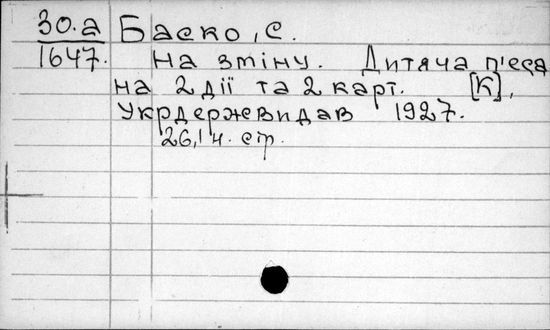 30.а Баско, С.
1647. На зміну. Дитяча п'єса
на 2 дії та 2 карт. [К],
Укрдержвидав 1927.
26,1 н. стр.